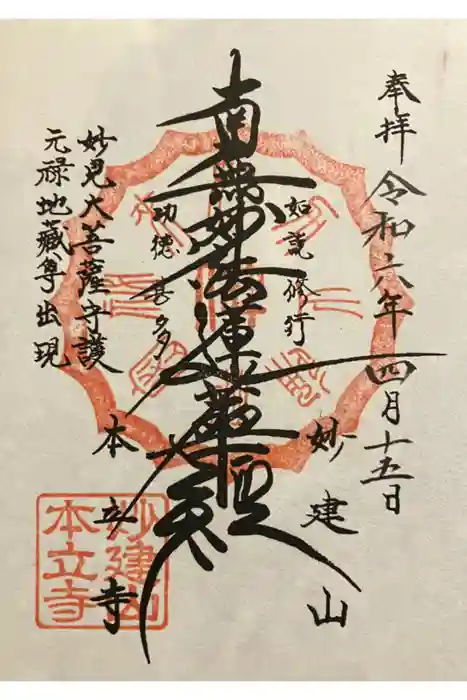 奉拝 令和六年四月十五日
妙建山
如説修行
南無妙法蓮華経
功徳甚多
本立寺
妙見大菩薩守護
元禄地蔵尊出現
妙建山
本立寺